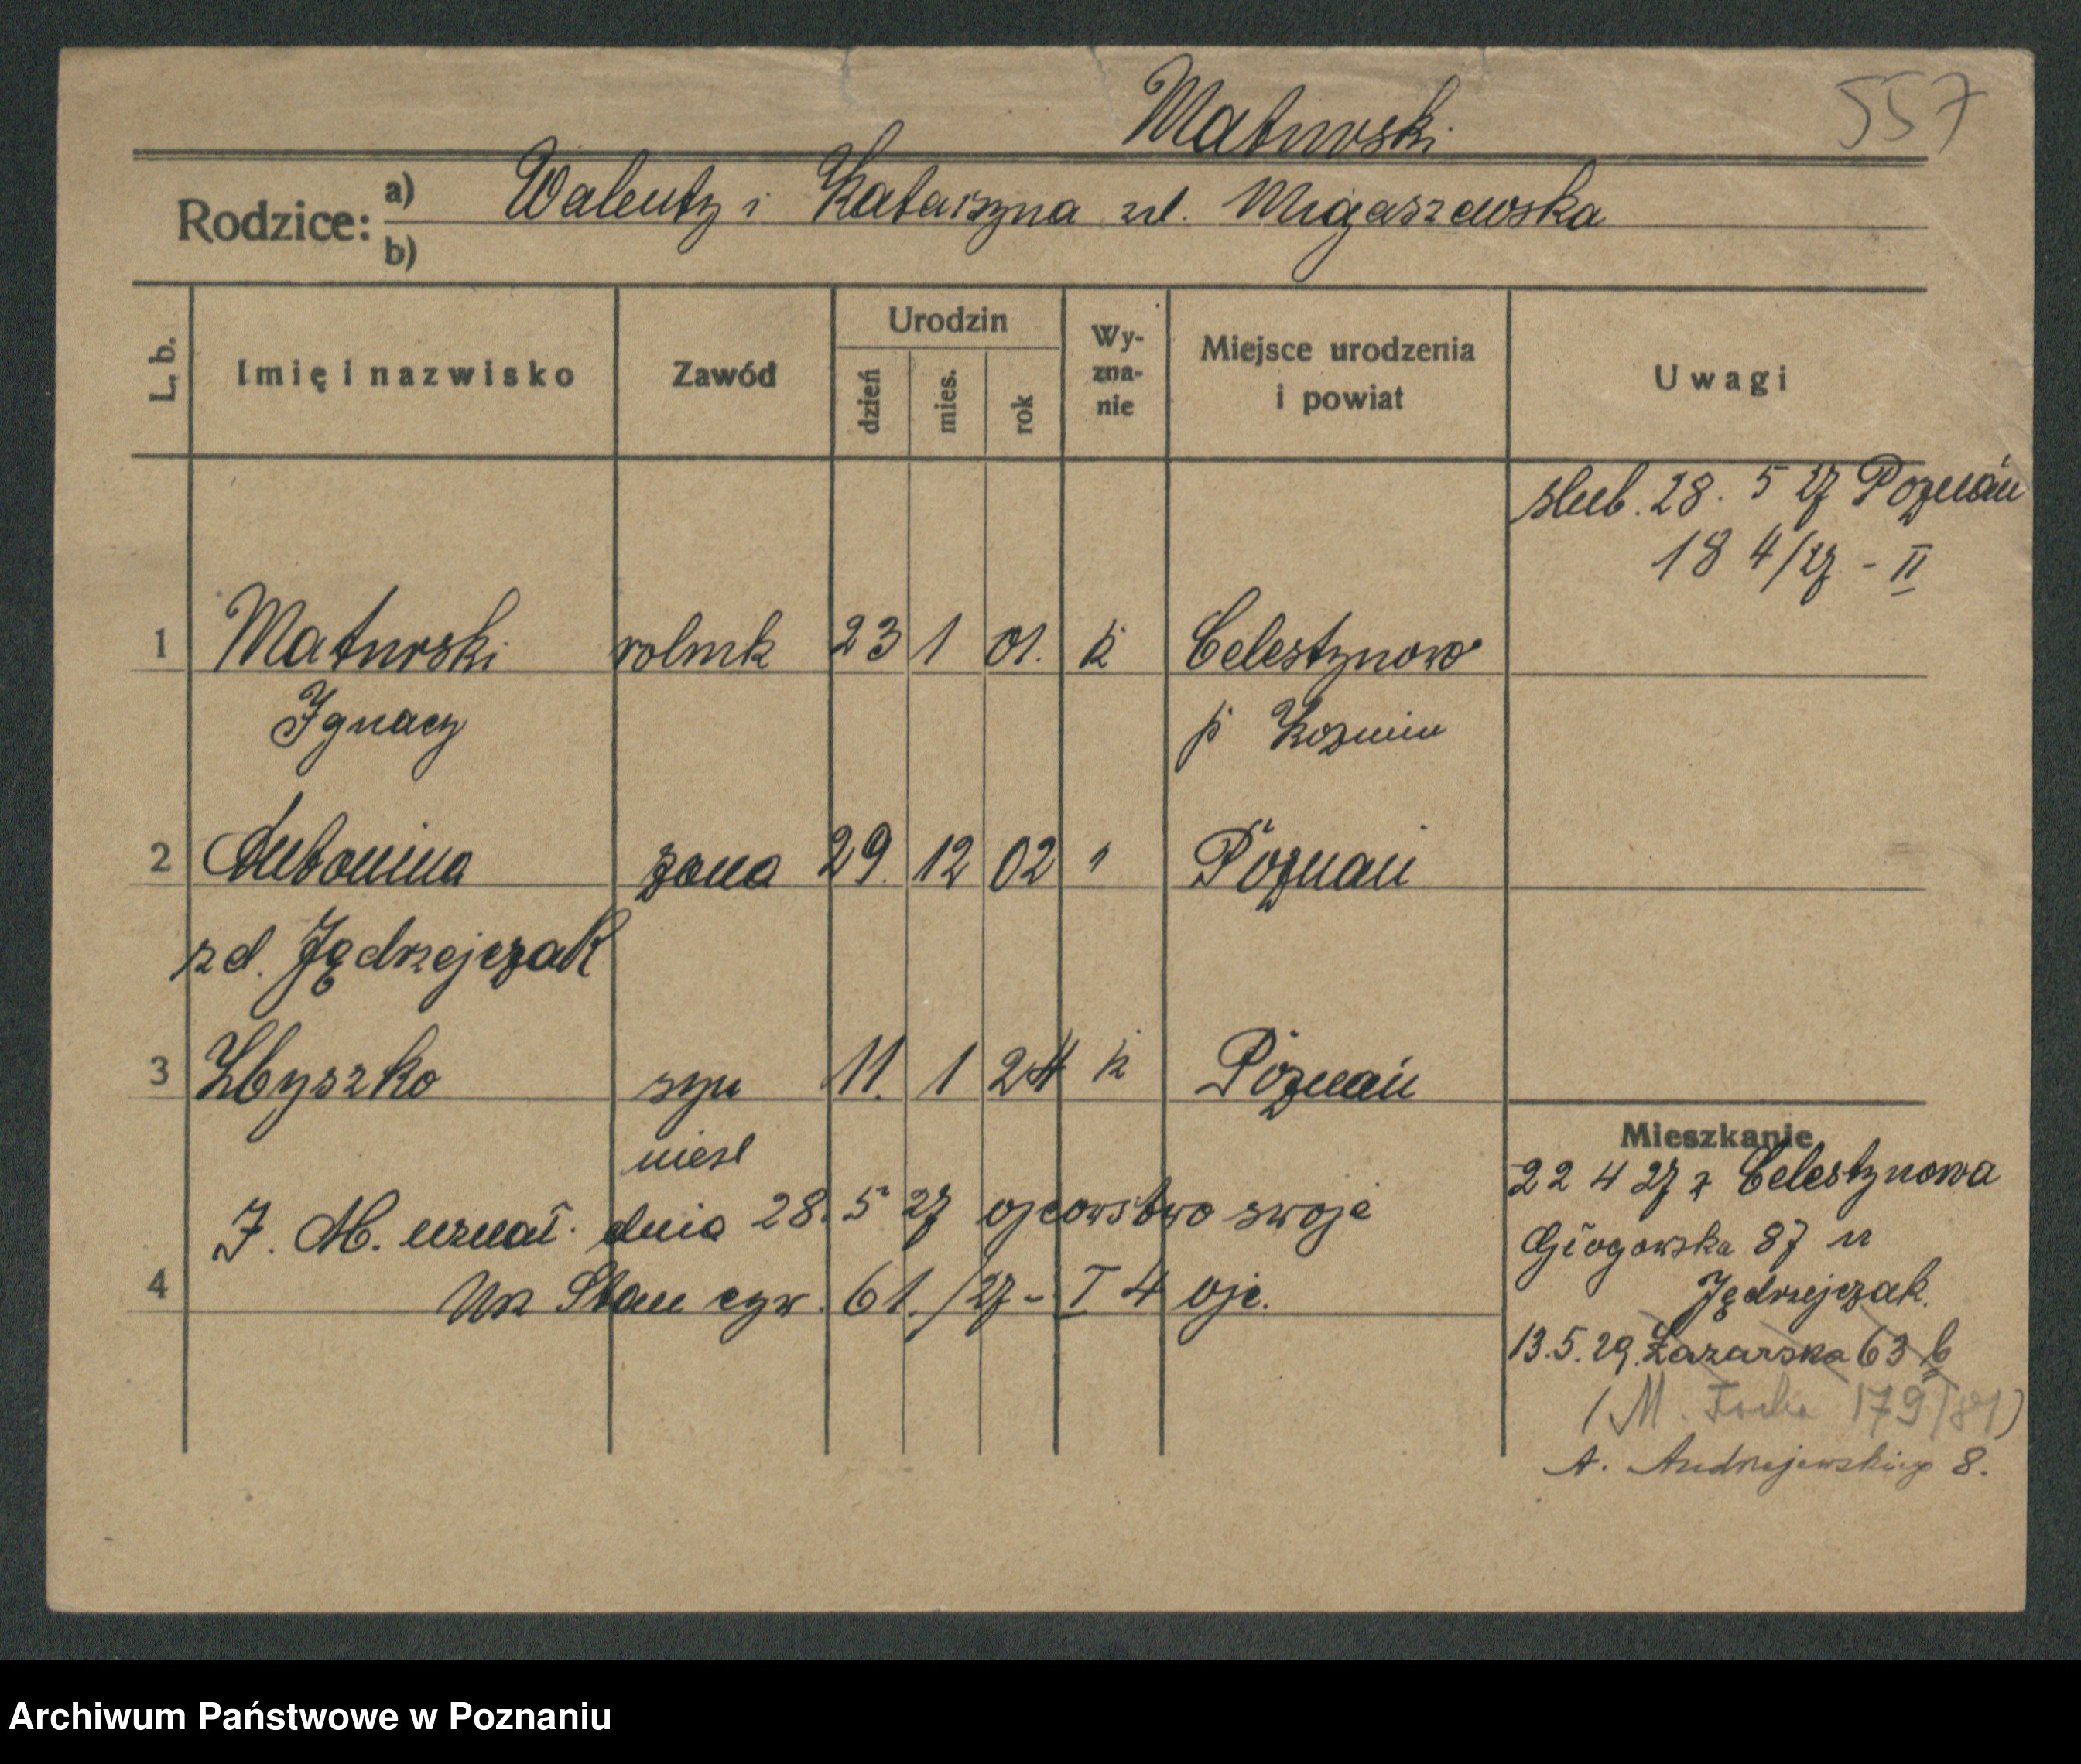 557
Maturski
Rodzice: a) Walenty i Katarzyna zd. Migaszewska
b)
L. b. Imię i nazwisko Zawód Urodzin dzień mies. rok Wy-zna-nie Miejsce urodzenia i powiat Uwagi
slub. 28. 5 27 Poznań
184/27 - II
1 Maturski rolnik 23 1 01. k Celestynowo
Ignacy p Kozmin
2 Antonina zona 29. 12 02 " Poznań
zd. Jędrzejczak
3 Zbyszko syn 11. 1 24 k Poznań
niesl
Mieszkanie
22 4 27 z Celestynowa
I. M. uznał dnia 28. 5 27 ojcowstwo swoje
Głogowska 87 u
4 Urz Stan cyw. 61./27 - I 4 ojc.
Jędrzejczak.
13.5.29. Łazarska 63 b
(M. Focha 179/81)
A. Andrzejewskiego 8.
Archiwum Państwowe w Poznaniu